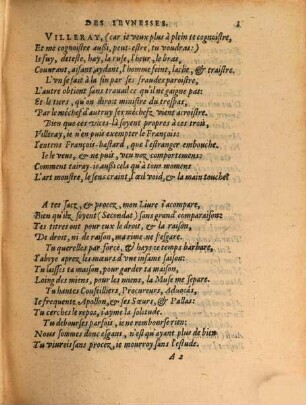 DES IEVNESSES.
VILLERAY, (car ie veux plus à plein te cognoistre,
Et me cognoistre aussi, peut-estre, tu voudras:)
Ie fuy, deteste, hay, la ruse, l'heur, le bras,
Courant, aisant, aydant, l'homme feint, lasche, & traistre.
L'vn se fait à la fin par ses fraudes paroistre,
L'autre obtient sans trauail ce qu'il ne gaigne pas:
Et le tiers, qu'on diroit ministre du trespas,
Par le mechef d'autruy ses mechefz vient accroistre.
Bien que ces vices-là soyent propres à ces trois,
Villeray, ie n'en puis exempter le François:
I'entens François-bastard, que l'estranger embouche.
Ie le veus, & ne voy noz comportemens:
Comment tairay-ie aussi cela qu'à tous momens
L'art monstre, le sens craint, l'œil void, & la main touche?
A tes sacz, & procez, mon Liure i'acompare,
Bien qu'ilz soyent (Secondat) sans grand comparaison:
Tes titres ont pour eux le droit, & la raison,
De droit, ni de raison, ma rime ne s'esgare.
Tu querelles par force, & hays ce temps barbare,
I'aboye apres les mœurs d'vne infame saison:
Tu laisses ta maison, pour garder ta maison,
Loing des miens, pour les miens, la Muse me separe.
Tu hantes Conseilliers, Procureurs, Aduocás,
Ie frequente Apollon, & ses Sœurs, & Pallas:
Tu cerches le repos, i'ayme la solitude.
Tu debourses parfois, ie ne rembourse rien:
Nous sommes donc esgaus, n'est qu'ayant plus de bien
Tu viurois sans procez, ie mourroy sans l'estude.
A 2